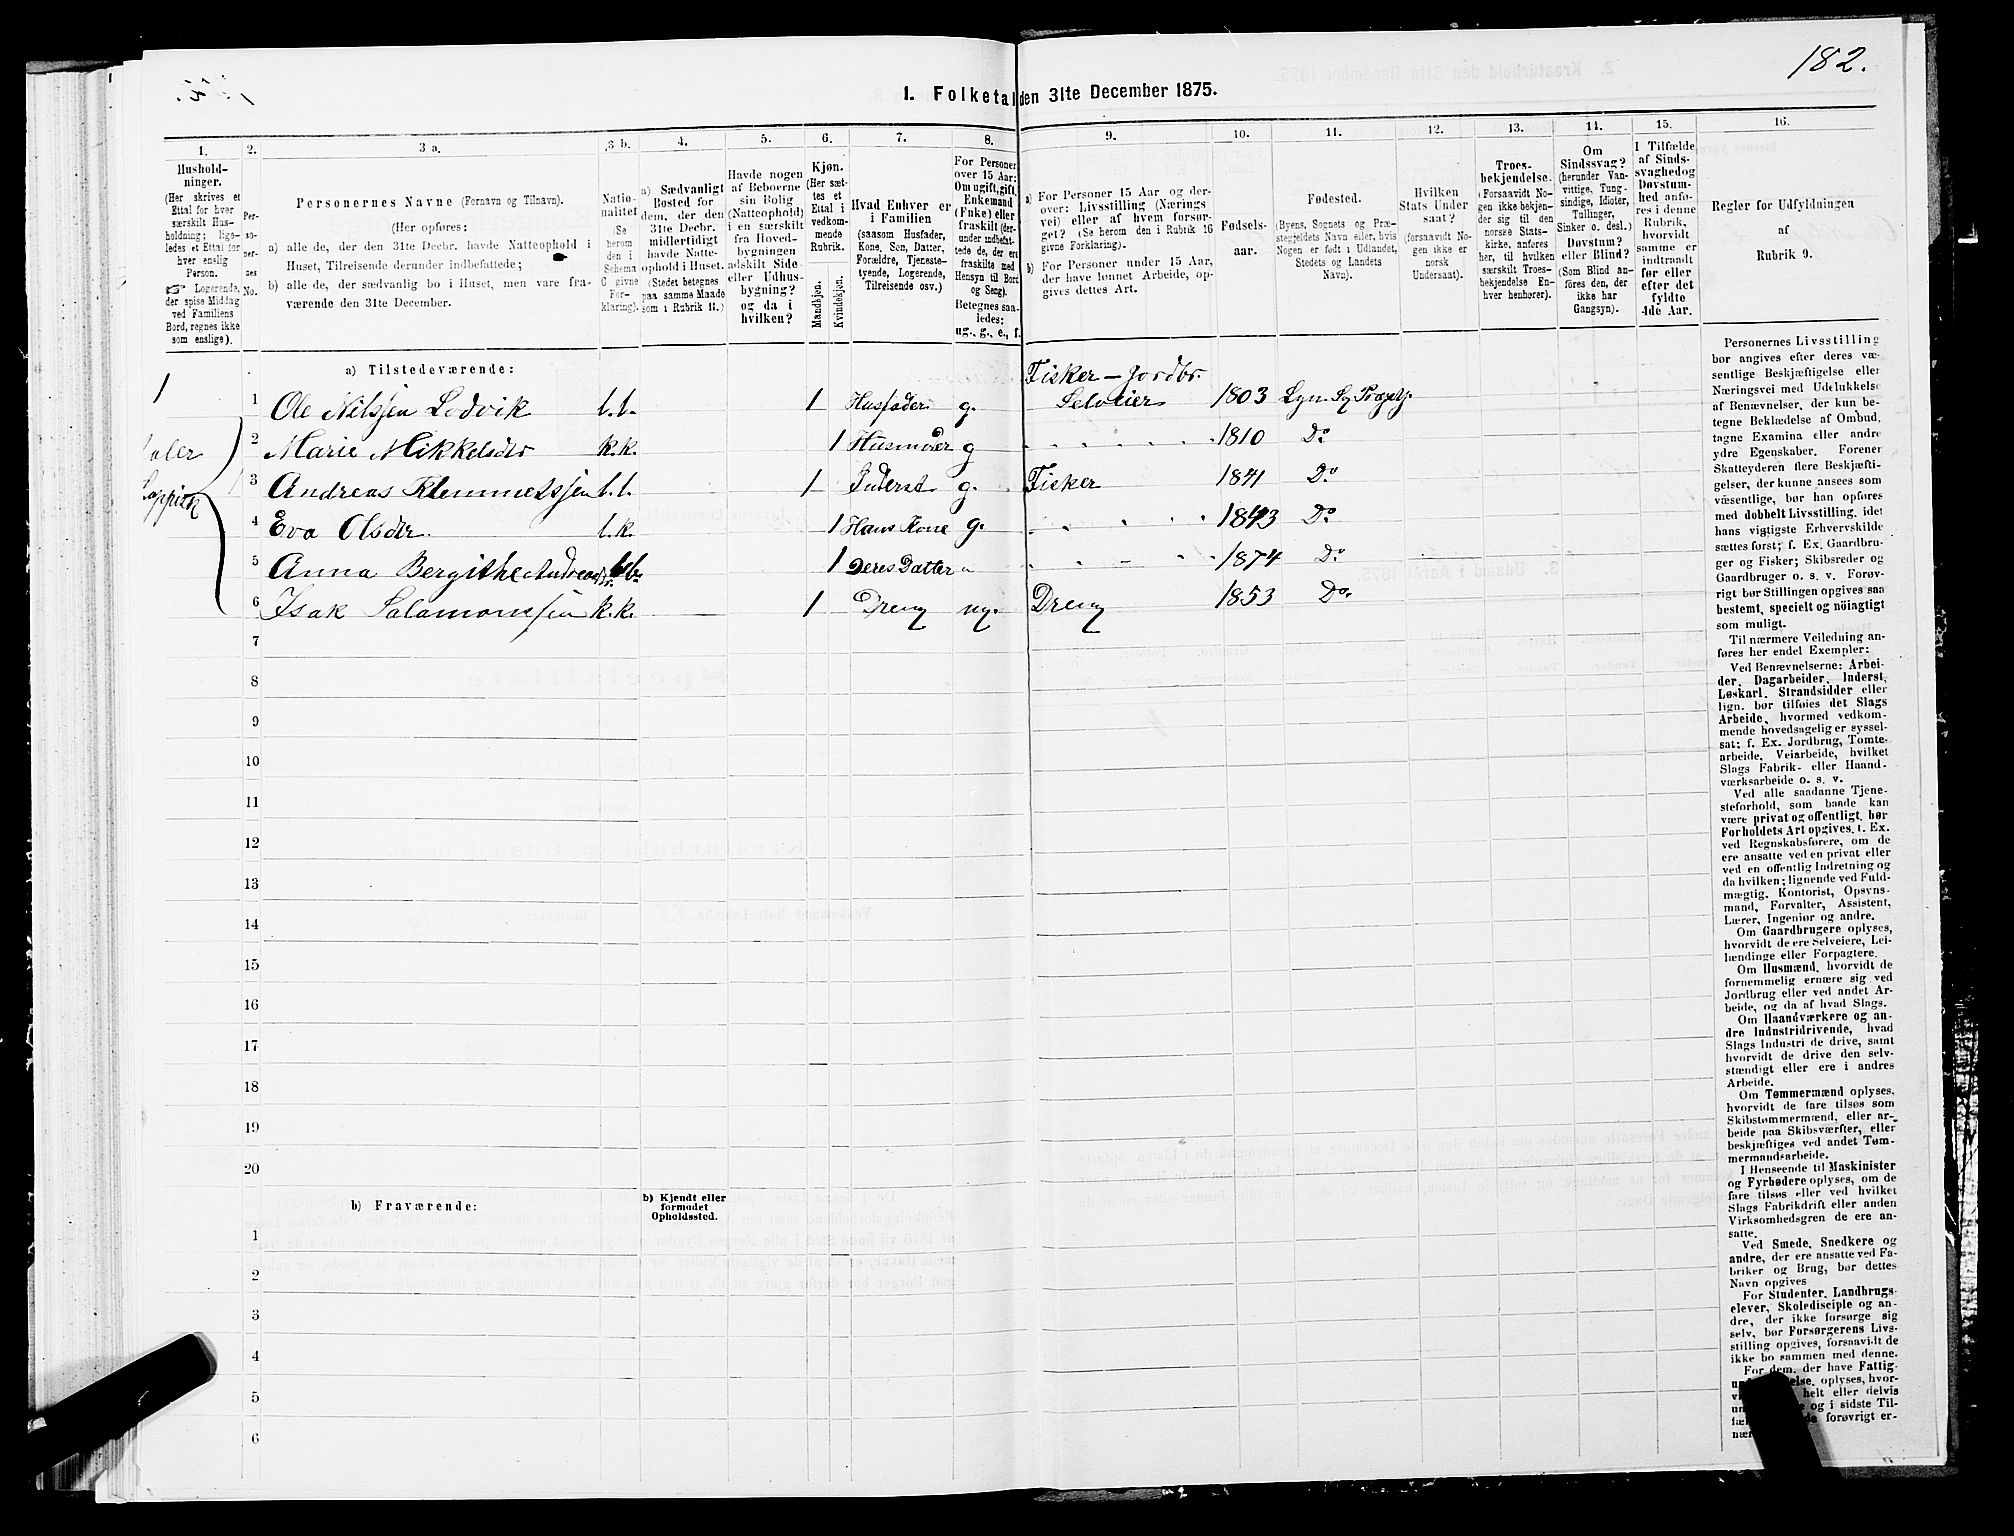 182.
1. Folketal den 31te December 1875.
1. 2. 3 a. 3 b. 4. 5. 6. 7. 8. 9. 10. 11. 12. 13. 14. 15. 16.
Hushold-
ninger.
(Her skrives et
Ettal for hver
særskilt Hus-
holdning; lige-
ledes et Ettal for
hver enslig
Person.
☞ Logerende,
der spise Middag
ved Familiens
Bord, regnes ikke
som enslige).
Per-
so-
ner-
nes
No.
Personernes Navne (Fornavn og Tilnavn).
(Her opføres:
a) alle de, der den 31te Decbr. havde Natteophold i
Huset, Tilreisende derunder indbefattede;
b) alle de, der sædvanlig bo i Huset, men vare fra-
værende den 31te December.
Natio-
nalitet
Se
herom
den i
Schema
C givne
For-
klaring).
a) Sædvanligt
Bosted for
dem, der den
31te Decbr.
midlertidigt
havde Natte-
ophold i Huset.
(Stedet betegnes
paa samme Maade
som i Rubrik 11.)
Havde nogen
af Beboerne
sin Bolig
(Natteophold)
i en særskilt
fra Hoved-
bygningen
adskilt Side-
eller Udhus-
bygning?
og da i
hvilken?
Kjøn.
(Her sæt-
tes et
Ettal i
vedkom-
mende
Rubrik.
Mandkjøn.
Kvindekjøn.
Hvad Enhver er
i Familien
(saasom Husfader,
Kone, Søn, Datter,
Forældre, Tjeneste-
tyende, Logerende,
Tilreisende osv.)
For Personer
over 15 Aar:
Om ugift, gift,
Enkemand
(Enke) eller
fraskilt (der-
under indbefat-
tede de, der ere
fraskilte med
Hensyn til Bord
og Seng).
Betegnes saa-
ledes:
ug., g., e., f.
a) For Personer 15 Aar og der-
over: Livsstilling (Nærings
vei) eller af hvem forsør-
get? (Se herom den i Rubrik 16
givne Forklaring).
b) For Personer under 15 Aar,
der have lønnet Arbeide, op-
gives dettes Art.
Fødsels-
aar.
Fødested.
(Byens, Sognets og Præ-
stegjeldets Navn eller, hvis
Nogen er født i Udlandet,
Stedets og Landets
Navn).
Hvilken
Stats Under
saat?
(forsaavidt No-
gen ikke er
norsk
Undersaat).
Troes-
bekjendelse.
(Forsaavidt No-
gen ikke bekjen-
der sig til den
norske Stats-
kirke, anføres
her, til hvilken
særskilt Troes-
bekjendelse En-
hver henhører).
Om
Sindssvag?
(herunder Van-
vittige, Tung-
sindige, Idioter,
Tullinger,
Sinker o. desl.)
Døvstum?
eller Blind?
(Som Blind an-
føres den, der
ikke har
Gangsyn).
I Tilfælde
af Sinds-
svaghed og
Døvstum-
hed anfø-
res i denne
Rubrik,
hvorvidt
samme er
indtraadt
før eller
efter det
fyldte
4de Aar.
Regler for Udfyldningen
af
Rubrik 9.
a) Tilstedeværende:
1
1 Ole Nilssen Lodvik l.l. 1 Husfader g. Fisker – Jordbr. Selveier 1803 Lyn. S. Præstgj.
2 Marie Mikkelsdr k.k. 1 Husmoer g 1810 Do.
3 Andreas Klemmetssen l.l. 1 Inderst g. Fisker 1841 Do
4 Eva Olsdr. l.k. 1 Hans Kone g. 1843 Do
5 Anna Bergithe Andreasdr. 1 Deres Datter 1874 Do
6 Isak Salamonssen k.k. 1 Dreng ug. Dreng 1853 Do.
7
8
9
10
11
12
13
14
15
16
17
18
19
20
b) Fraværende:
b) Kjendt eller
formodet
Opholdssted.
1
2
3
4
5
6
Personernes Livsstilling
bør angives efter deres væ-
sentlige Beskjæftigelse eller
Næringsvei med Udelukkelse
af Benævnelser, der kun be-
tegne Beklædelse af Ombud,
tagne Examina eller andre
ydre Egenskaber. Forener
Skatteyderen flere Beskjæfti-
gelser, der kunne ansees som
væsentlige, bør han opføres
med dobbelt Livsstilling, idet
hans vigtigste Erhvervskilde
sættes først; f. Ex. Gaardbru-
ger og Fisker; Skibsreder og
Gaardbruger o. s. v. Forøv-
rigt bør Stillingen opgives saa
bestemt, specielt og nöiagtigt
som muligt.
Til nærmere Veiledning an-
føres her endel Exempler:
Ved Benævnelserne: Arbei-
der, Dagarbeider, Inderst,
Løskarl, Strandsidder eller
lign. bør tilføies det Slags
Arbeide, hvormed vedkom-
mende hovedsagelig er syssel-
sat; f. Ex. Jordbrug, Tomte-
arbeide, Veiarbeide, hvilket
Slags Fabrik- eller Haand-
værksarbeide o. s. v.
Ved alle saadanne Tjene-
steforhold, som baade kan
være privat og offentligt, bør
Forholdets Art opgives, f. Ex.
ved Regnskabsførere, om de
ere ansatte ved en privat eller
ved en offentlig Indretning og
da hvilken; lignende ved Fuld-
mægtig, Kontorist, Opsyns-
mand, Forvalter, Assistent,
Lærer, Ingeniør og andre.
Om Gaardbrugere oplyses,
hvorvidt de ere Selveiere, Lei-
lændinge eller Forpagtere.
Om Husmænd, hvorvidt de
fornemmelig ernære sig ved
Jordbrug eller ved andet Ar-
beide, og da af hvad Slags.
Om Haandværkere og an-
dre Industridrivende, hvad
Slags Industri de drive, samt
hvorvidt de drive den selv-
stændigt eller ere i andres
Arbeide.
Om Tømmermænd oplyses,
hvorvidt de fare tilsøs som
Skibstømmermænd, eller ar-
beide paa Skibsværfter, eller
beskjæftiges ved andet Tøm-
mermandsarbeide.
I Henseende til Maskinister
og Fyrbødere oplyses, om de
fare tilsøs eller ved hvilket
Slags Fabrikdrift eller anden
Virksomhedsgren de ere an-
satte.
Ved Smede, Snedkere og
andre, der ere ansatte ved Fa-
briker og Brug, bør dettes
Navn opgives
For Studenter, Landbrugs-
elever, Skoledisciple og an-
dre, der ikke forsørge sig
selv, bør Forsørgerens Livs-
stilling opgives, forsaavidt de
ikke bo sammen med denne.
For dem, der have Fattig-
oplyses, hvor-
helt eller delvis
og i sidste Til-
forøvrigt er-